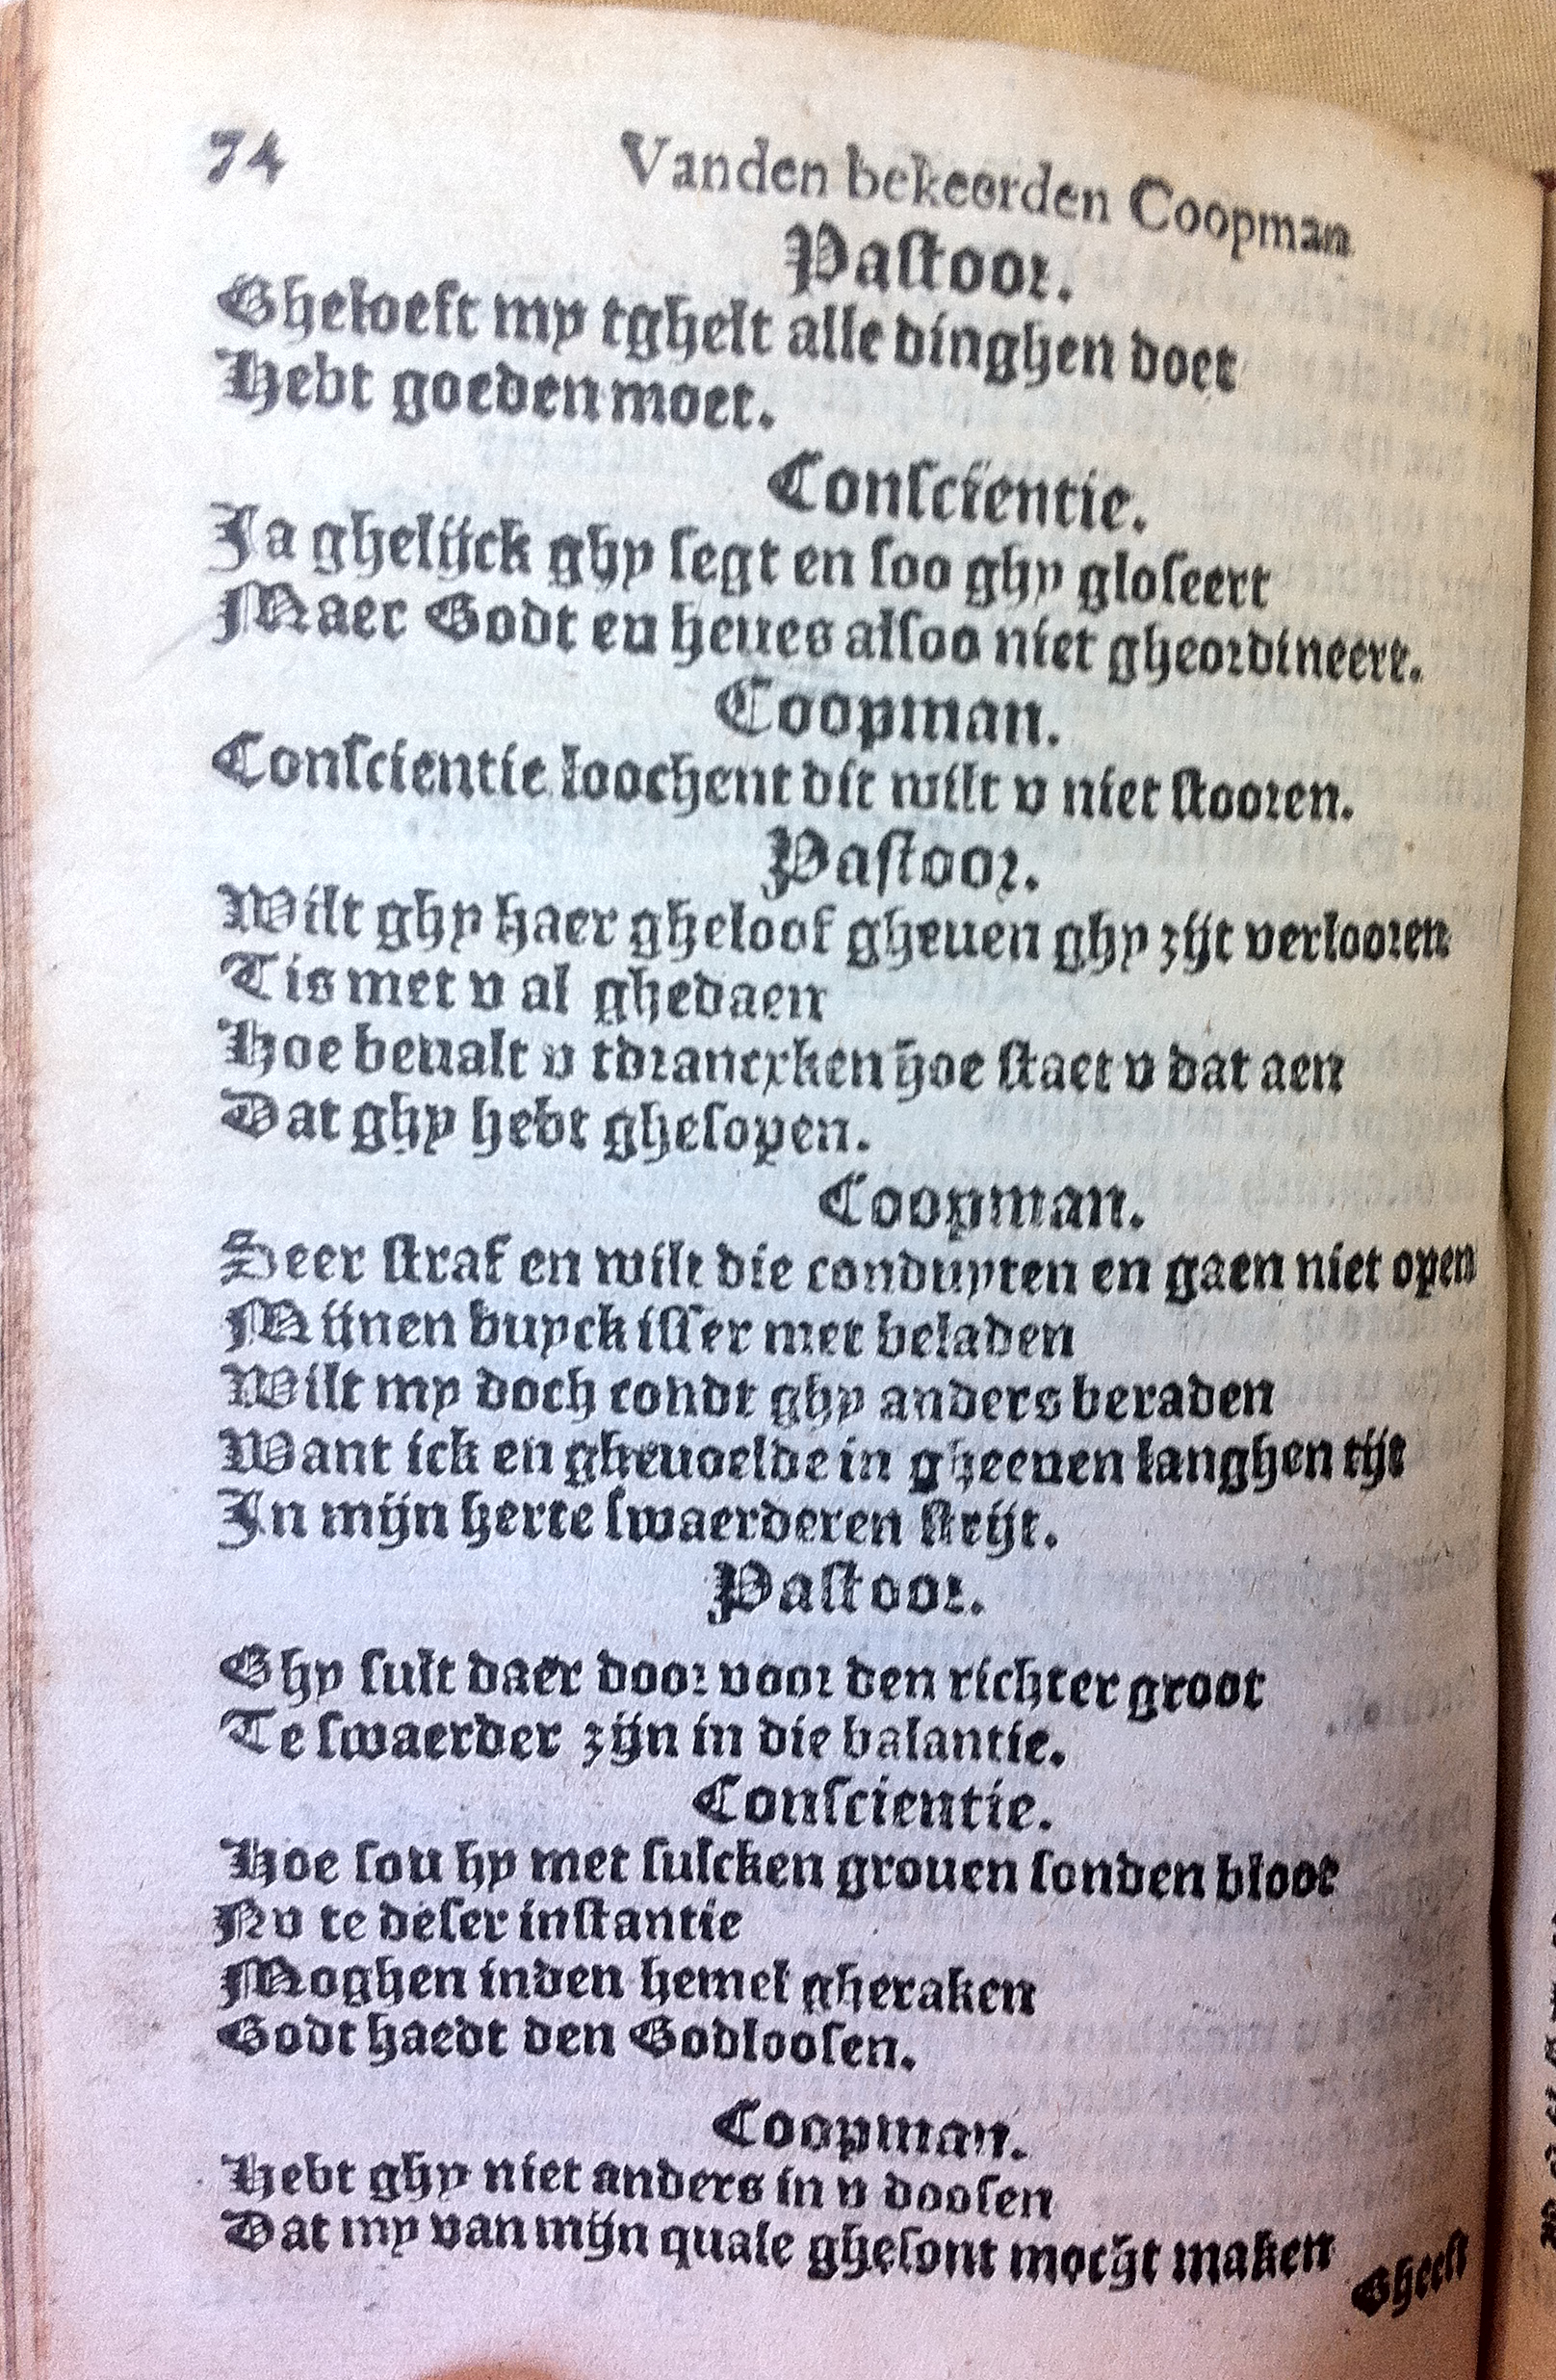 74 Vanden bekeerden Coopman
Pastoor.
Gheloeft my tghelt alle dinghen doet
Hebt goeden moet.
Conscientie.
Ja ghelijck ghy segt en soo ghy gloseert
Maer Godt en heues alsoo niet gheordineert.
Coopman.
Conscientie loochent dit wilt v niet stooren.
Pastoor.
Wilt ghy haer gheloof gheuen ghy zijt verlooren
Tis met v al ghedaen
Hoe beualt v tdrancxken hoe staet v dat aen
Dat ghy hebt ghesopen.
Coopman.
Seer straf en wilt die conduyten en gaen niet open
Mijnen buyck isser met beladen
Wilt my doch condt ghy anders beraden
Want ick en gheuoelde in gheenen langhen tijt
In mijn herte swaerderen strijt.
Pastoor.
Ghy sult daer door voor den richter groot
Te swaerder zijn in die balantie.
Conscientie.
Hoe sou hy met sulcken grouen sonden bloot
Nv te deser instantie
Moghen inden hemel gheraken
Godt haedt den Godloosen.
Coopman.
Hebt ghy niet anders in v doosen
Dat my van mijn quale ghesont mocht maken
Gheest